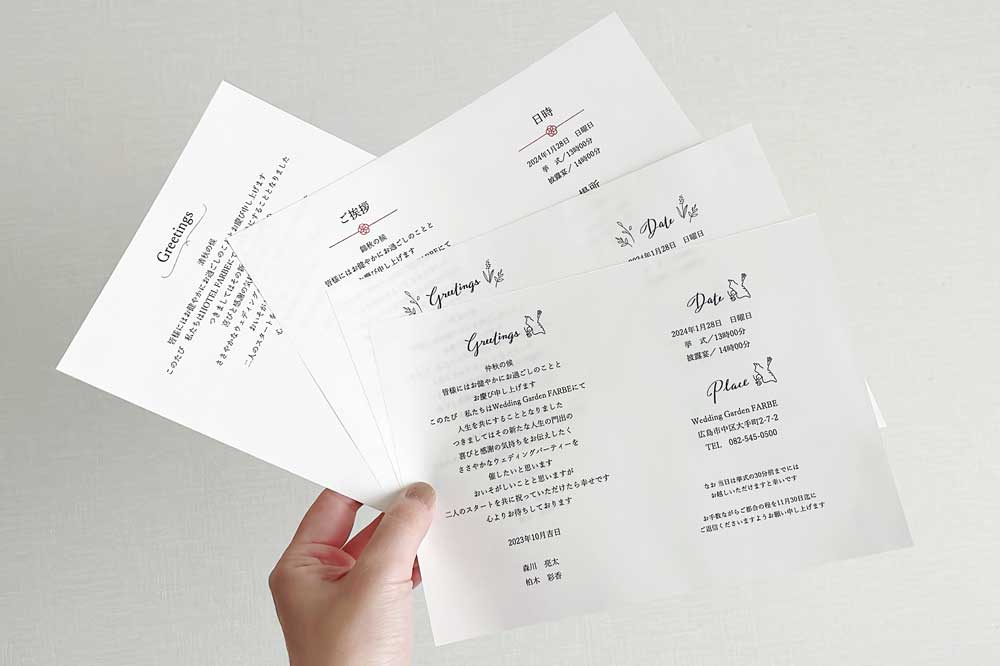 Greetings
清秋の候
皆様にはお健やかにお過ごしのこととお慶び申し上げます
このたび 私たちはHOTEL FARBEにて
することとなりました
つきましてはその新
喜びと感謝の気
ささやかなウェディング
おいそがし
二人のスタートを
心
ご挨拶
錦秋の候
皆様にはお健やかにお過ごしのことと
お慶び申し上げます
にて
日時
2024年1月28日 日曜日
挙 式/13時00分
披露宴/14時00分
場所
Greetings
Date
2024年1月28日 日曜日
Greetings
仲秋の候
皆様にはお健やかにお過ごしのことと
お慶び申し上げます
このたび 私たちはWedding Garden FARBEにて
人生を共にすることとなりました
つきましてはその新たな人生の門出の
喜びと感謝の気持ちをお伝えしたく
ささやかなウェディングパーティーを
催したいと思います
おいそがしいことと思いますが
二人のスタートを共に祝っていただけたら幸せです
心よりお待ちしております
2023年10月吉日
森川 亮太
柏木 彩香
Date
2024年1月28日 日曜日
挙 式/13時00分
披露宴/14時00分
Place
Wedding Garden FARBE
広島市中区大手町2-7-2
TEL 082-545-0500
なお 当日は挙式の30分前までには
お越しいただけますと幸いです
お手数ながらご都合の程を11月30日迄に
ご返信くださいますようお願い申し上げます